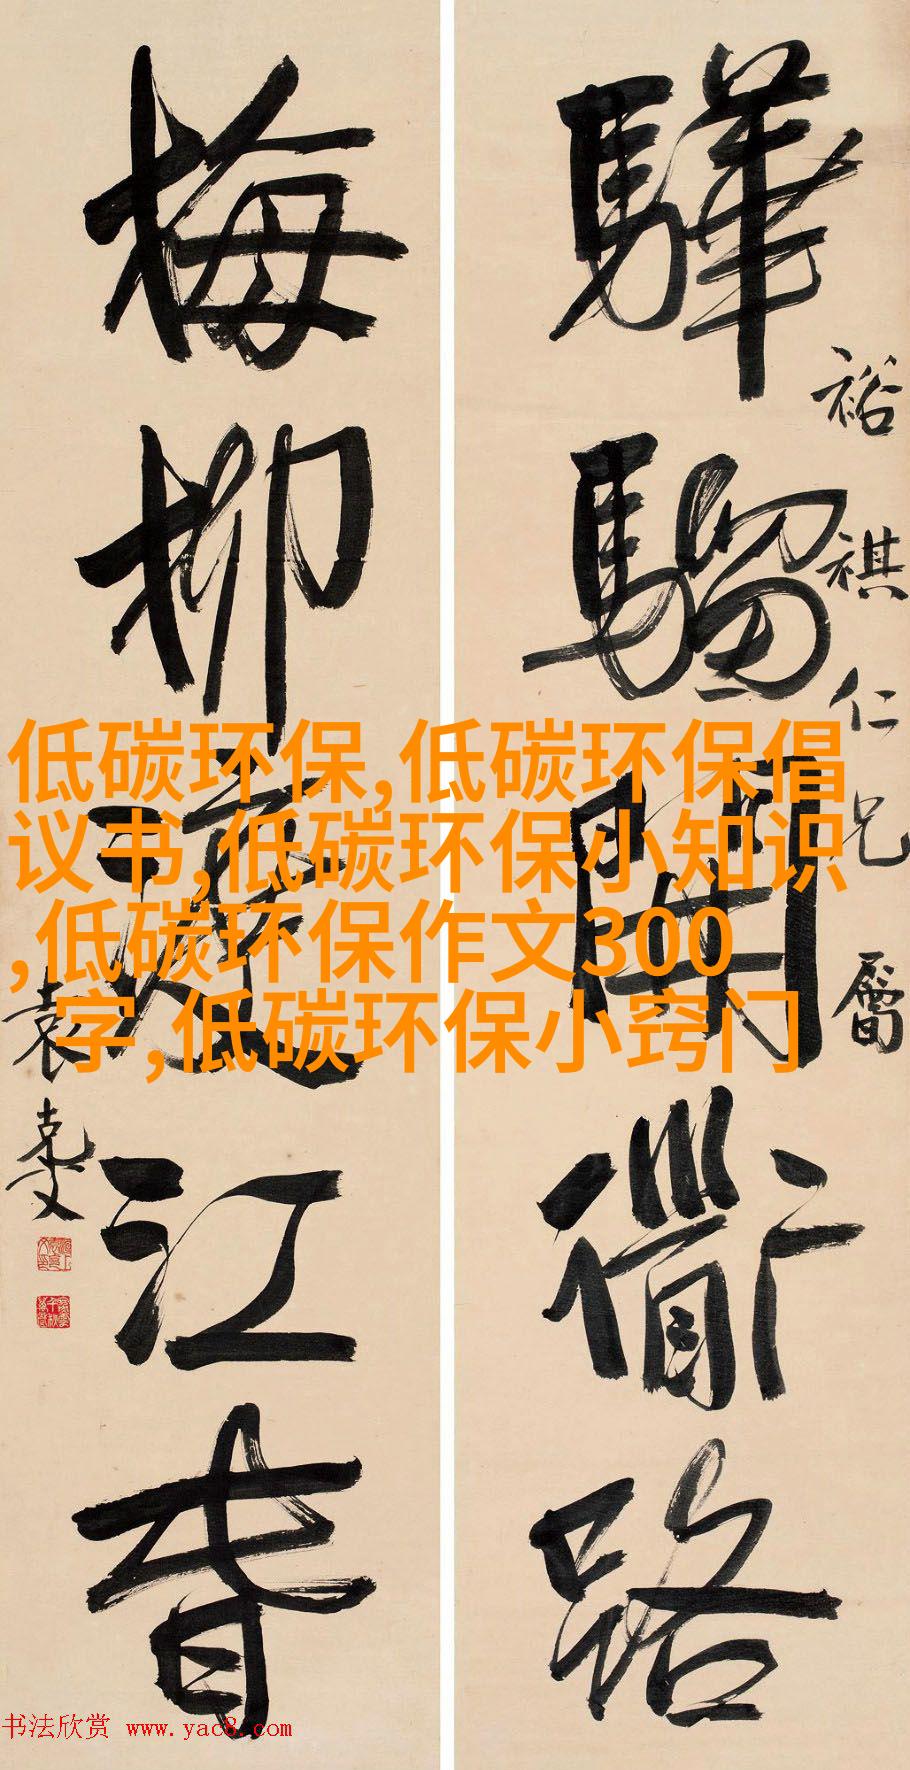 裕祺仁兄屬
驊騮開衜路
梅柳渡江春
袁克文
低碳环保,低碳环保倡
议书,低碳环保小知识
,低碳环保作文300
字,低碳环保小窍门
书法欣赏 www.yac8.com